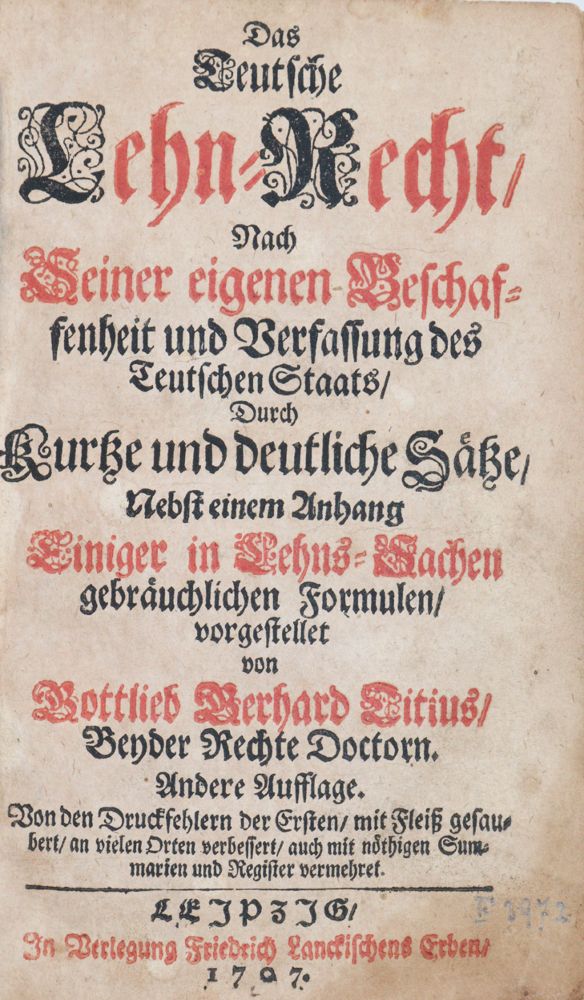 Das
Teutsche
Lehn-Recht/
Nach
Seiner eigenen Beschaf-
fenheit und Verfassung des
Teutschen Staats/
Durch
Kurtze und deutliche Sätze/
Nebst einem Anhang
Einiger in Lehns-Sachen
gebräuchlichen Formulen/
vorgestellet
von
Gottlieb Gerhard Titius/
Beyder Rechte Doctorn.
Andere Aufflage.
Von den Druckfehlern der Ersten/ mit Fleiß gesau-
bert/ an vielen Orten verbessert/ auch mit nöthigen Sum-
marien und Register vermehret.
LEJPZJG/
In Verlegung Friedrich Lanckischens Erben/
1707.